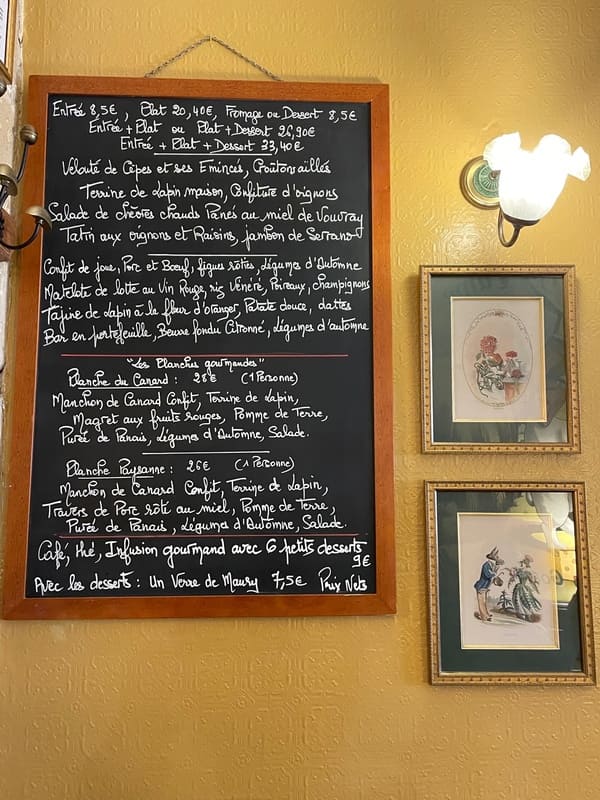 Entrée 8,5€, Plat 20,40€, Fromage ou Dessert 8,5€
Entrée + Plat ou Plat + Dessert 26,90€
Entrée + Plat + Dessert 33,40€
Velouté de Cèpes et ses Emincés, Croûtons aillés
Terrine de Lapin maison, Confiture d'oignons
Salade de chèvres chauds Panés au miel de Vouvray
Tatin aux oignons et Raisins, jambon de Serrano
Confit de joue, Porc et Bœuf, figues rôties, Légumes d'Automne
Matelote de lotte au Vin Rouge, riz Vénéré, Poireaux, champignons
Tajine de Lapin à la fleur d'oranger, Patate douce, dattes
Bar en portefeuille, Beurre fondu Citronné, Légumes d'automne
"Les Planches gourmandes"
Planche du Canard : 28€ (1 Personne)
Manchon de Canard Confit, Terrine de Lapin,
Magret aux fruits rouges, Pomme de Terre,
Purée de Panais, Légumes d'Automne, Salade.
Planche Paysanne : 26€ (1 Personne)
Manchon de Canard Confit, Terrine de Lapin,
Travers de Porc rôti au miel, Pomme de Terre,
Purée de Panais, Légumes d'Automne, Salade.
Café, thé, Infusion gourmand avec 6 petits desserts
9€
Avec les desserts : Un Verre de Maury 7,5€ Prix Nets